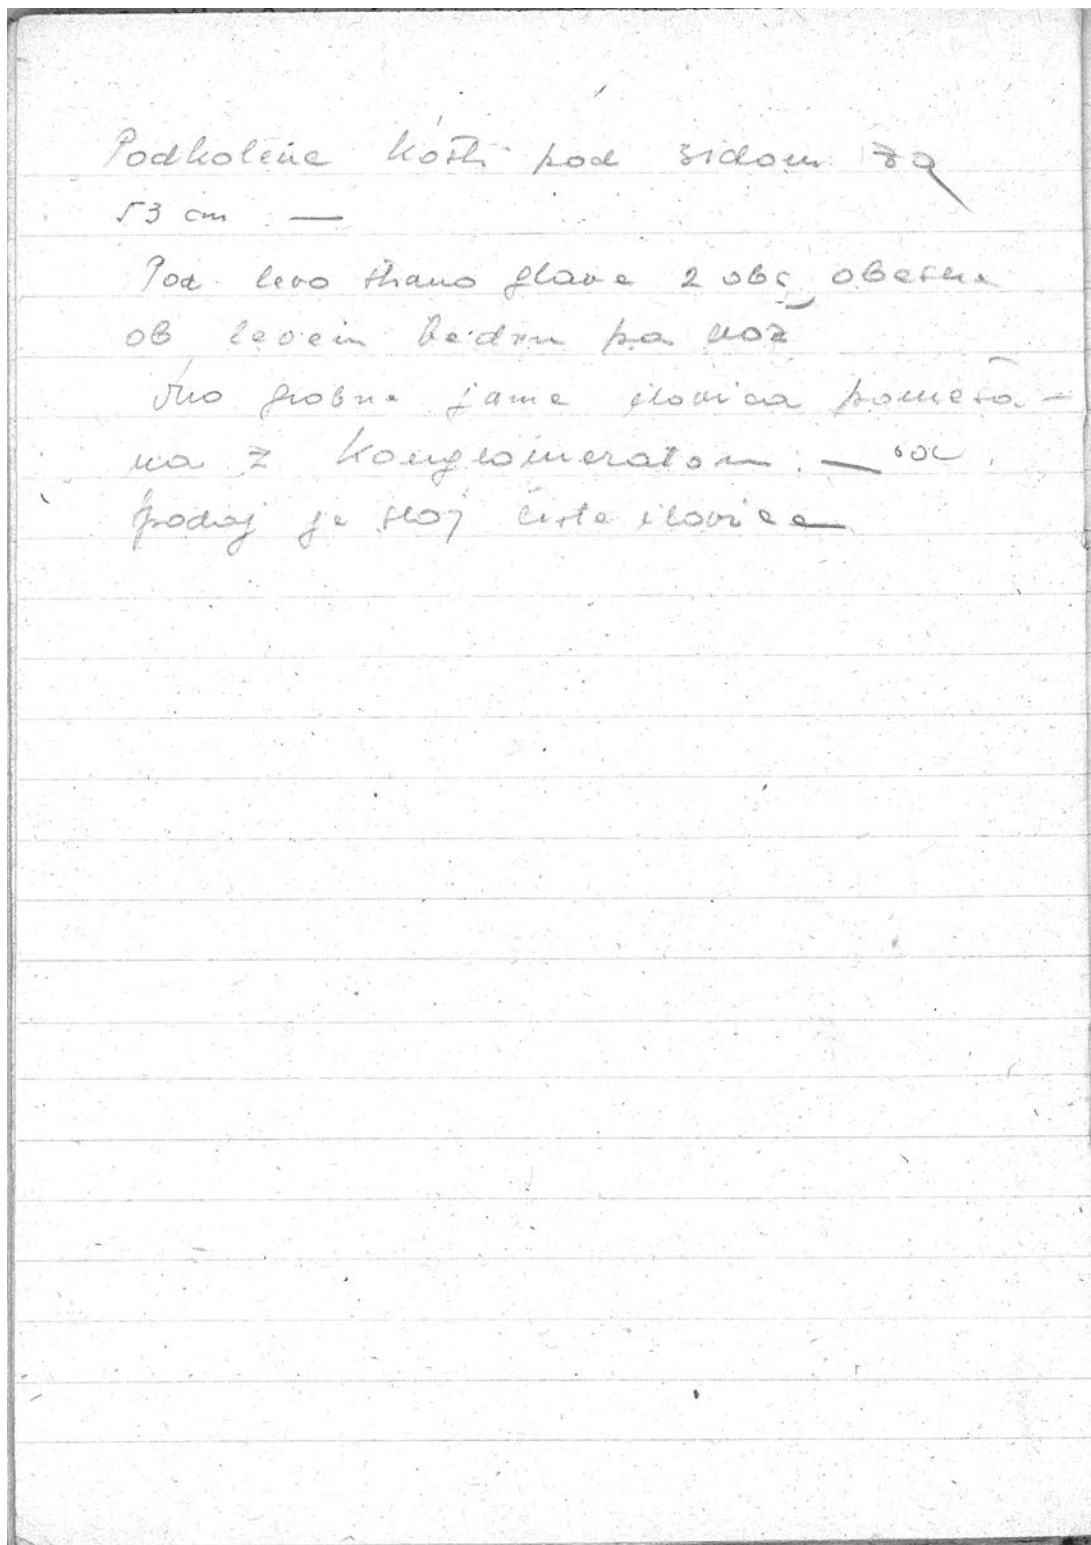 Podkolene kosti pod zidom za
53 cm —
Pod levo strano glave 2 obs. obeska
ob levem bedru pa nož
Dno grobne jame ilovica pomeša-
na z konglomeratom. —
podaj je sloj čiste ilovice